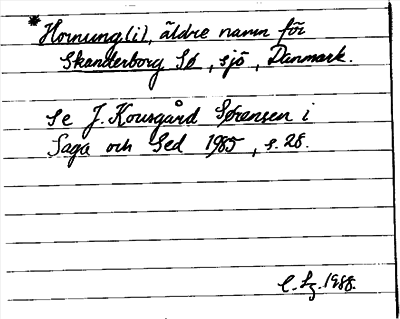 *Hornung(i), äldre namn för
Skanderborg Sø, sjö, Danmark.
Se J. Kousgård Sørensen i
Saga och Sed 1985, s. 28.
C. Lz. 1988.